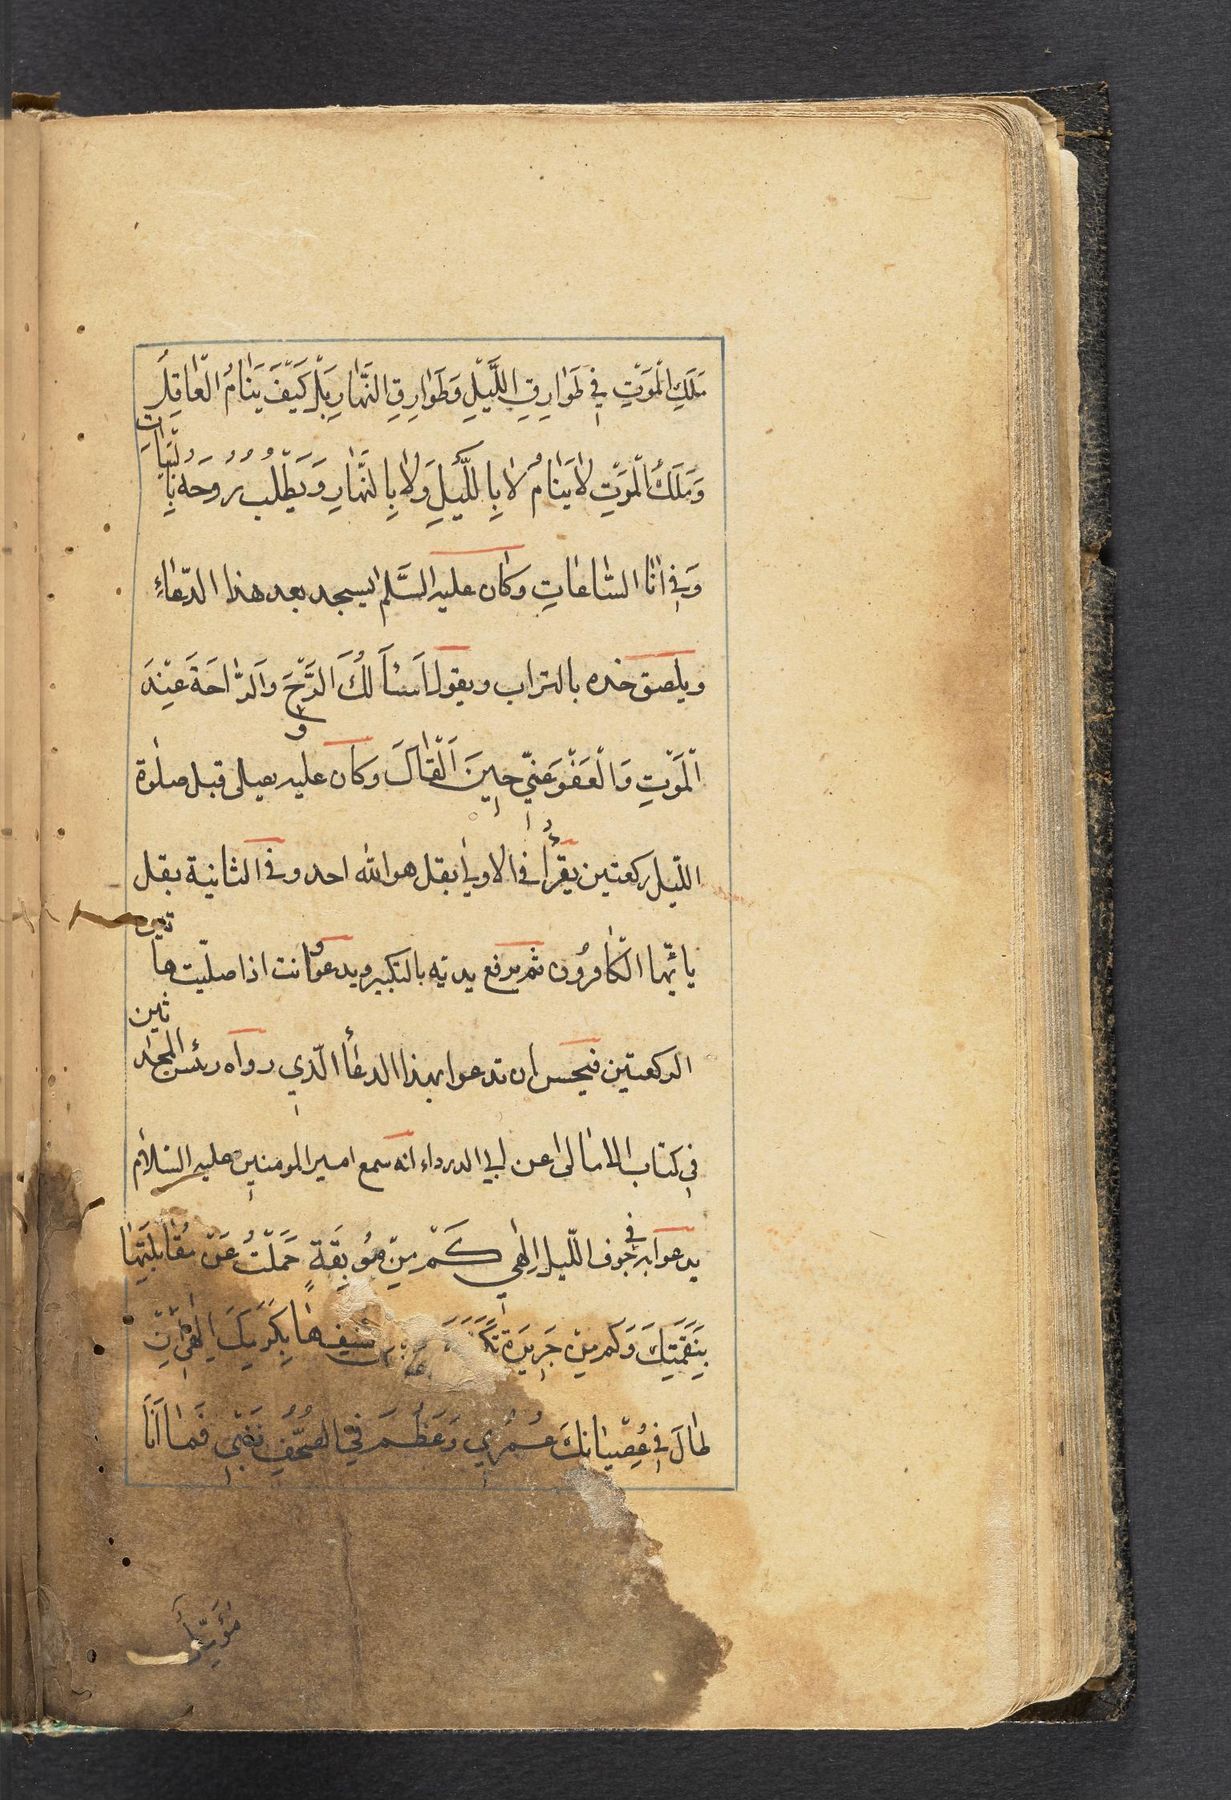 مَلَكِ الْمَوْتِ في طَوَارِقِ اللَّيْلِ وَطَوَارِقِ النَّهَارِ بَلْ كَيْفَ يَنَامُ الْعَاقِلُ
وَمَلَكُ الْمَوْتِ لَا يَنَامُ لَا بِاللَّيْلِ وَلَا بِالنَّهَارِ وَيَطْلُبُ رُوحَهُ بِالْبَيَاتِ
وَفِي انَا السَّاعَاتِ وكان عليه السَّلم يسجد بعد هذا الدّعاءِ
ويلصق خده بالتراب ويقول اَسْأَلُكَ الرَّوْحَ وَالرَّاحَةَ عِنْدَ
الْمَوْتِ وَالْعَفْوَ عَنّي حِينَ اَلْقَاكَ وكان عليه يصلى قبل صلوة
اللّيل ركعتين يقرأُ في الاولى بقل هو الله احد وفي الثانية بقل
يا ايّها الكافرُون ثم يرفع يديه بالتكبير ويدعو وانت اذا صلّيت هاتين
الركعتين فيحسن ان تدعوا بهذا الدعاء الّذي رواه رئس المحدثين
في كتاب الامالى عن ابي الدرداء انه سمع امير المومنين عليه السّلام
يدعوا به في جوف اللّيل اِلهي كَمْ مِنْ مُوبِقَةٍ حَمَلْتُ عَنْ مُقَابَلَتِهَا
بِنَقِمَتِكَ وَكَم مِنْ جَرِيرَة تَكَرَّمْتَ عن كشفِهَا بِكَرَمِكَ اِلهي اِنْ
طالَ في عِصْيَانِكَ عُمْري وَعَظُمَ في الصُّحُفِ ذَنْبي فَمَا اَنَا
مُؤَمِّلٌ